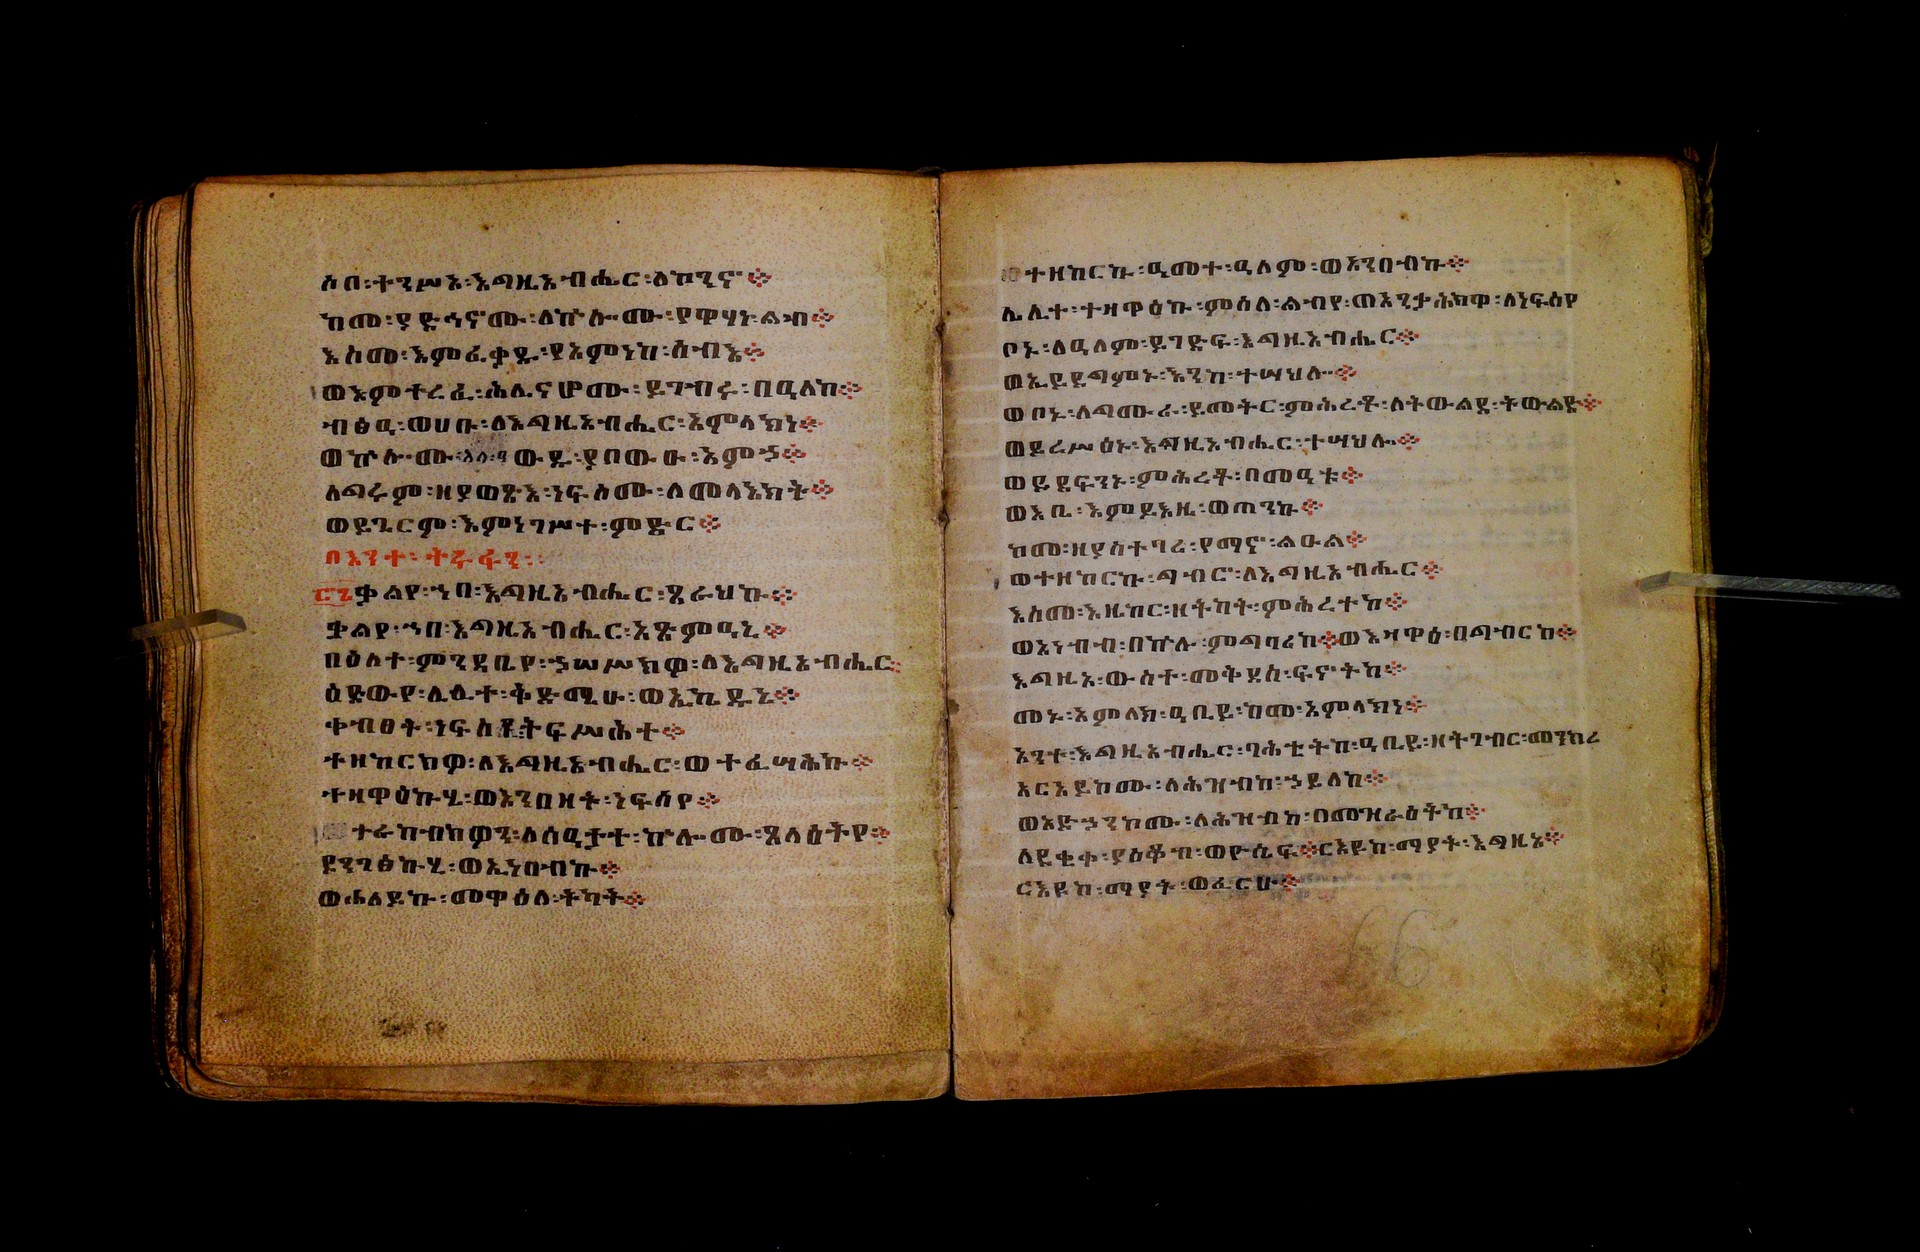 ሶበ፡ተንሥአ፡እግዚአብሔር፡ለኰንኖ፨
ከመ፡ያድኅኖሙ፡ለኵሎሙ፡የዋሃነ፡ልብ፨
እስመ፡እምፈቃዱ፡ያአምነከ፡ሰብእ፨
ወእምተረፈ፡ሕሊናሆሙ፡ይገብሩ፡በዓለከ፨
ብፅዓ፡ወሀቡ፡ለእግዚአብሔር፡አምላክነ፨
ወኵሎሙ፡እለ፡ዓውዱ፡ያበውኡ፡አምኃ፨
ለግሩም፡ዘያወጽእ፡ነፍሶሙ፡ለመላእክት፨
ወይጌርም፡እምነገሥተ፡ምድር፨
በእንተ፡ትሩፋን፡፡
ቃልየ፡ኀበ፡እግዚአብሔር፡ጸራህኩ፨
ቃልየ፡ኀበ፡እግዚአብሔር፡አጽምዓኒ፨
በዕለተ፡ምንዳቤየ፡ኃሠሥክዎ፡ለእግዚአብሔር፨
እድውየ፡ሌሊተ፡ቅድሜሁ፡ወኢኬዱኒ፨
ቀብፀት፡ነፍስየ፡ትፍሥሕተ፨
ተዘከርክዎ፡ለእግዚአብሔር፡ወተፈሣሕኩ፨
ተዛዋዕኩሂ፡ወአንበዘት፡ነፍስየ፨
ተራከብክዎን፡ለሰዓታት፡ኵሎሙ፡ጸላዕትየ፨
ደንገፅኩሂ፡ወኢነበብኩ፨
ወሐለይኩ፡መዋዕለ፡ትካት፨
ተዘከርኩ፡ዓመተ፡ዓለም፡ወአንበብኩ፨
ሌሊተ፡ተዛዋዕኩ፡ምስለ፡ልብየ፡ወእንታሕክዋ፡ለነፍስየ
ቦኑ፡ለዓለም፡ይገድፍ፡እግዚአብሔር፨
ወኢይደግምኑ፡እንከ፡ተሣህሎ፨
ወቦኑ፡ለግሙራ፡ይመትር፡ምሕረቶ፡ለትውልደ፡ትውልድ፨
ወይረሥዕኑ፡እግዚአብሔር፡ተሣህሎ፨
ወይደፍንኑ፡ምሕረቶ፡በመዓቱ፨
ወእቤ፡እምይእዜ፡ወጠንኩ፨
ከመ፡ዘያስተባሪ፡የማኖ፡ልዑል፨
ወተዘከርኩ፡ግብሮ፡ለእግዚአብሔር፨
እስመ፡እዜከር፡ዘትካት፡ምሕረተከ፨
ወእነብብ፡በኵሉ፡ምግባሪከ፨ወእዛዋዕ፡በግብርከ፨
እግዚኦ፡ውስተ፡መቅደስ፡ፍኖትከ፨
መኑ፡አምላክ፡ዓቢይ፡ከመ፡አምላክነ፨
አንተ፡እግዚአብሔር፡ባሕቲትከ፡ዓቢይ፡ዘትገብር፡መንክረ
አርአይኮሙ፡ለሕዝብከ፡ኃይለከ፨
ወአድኃንኮሙ፡ለሕዝብከ፡በመዝራዕትከ፨
ለደቂቀ፡ያዕቆብ፡ወዮሴፍ፨ርእዩከ፡ማያት፡እግዚኦ፨
ርእዩከ፡ማያት፡ወፈርሁ፨